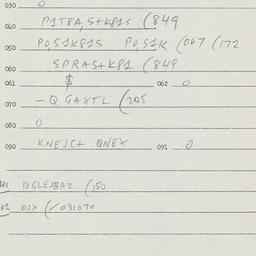 030 0
040 P1T8A,S+K81S (849
050 P0,S1K81S P0,S1K (067 (172
060 SPRAS+K81 (849
061 $ 062 0
070 - Q GAXTL (205
080 0
090 KNEJC+ QNEX 091 0
IXGLEJBAZ (150
OJX (/031070